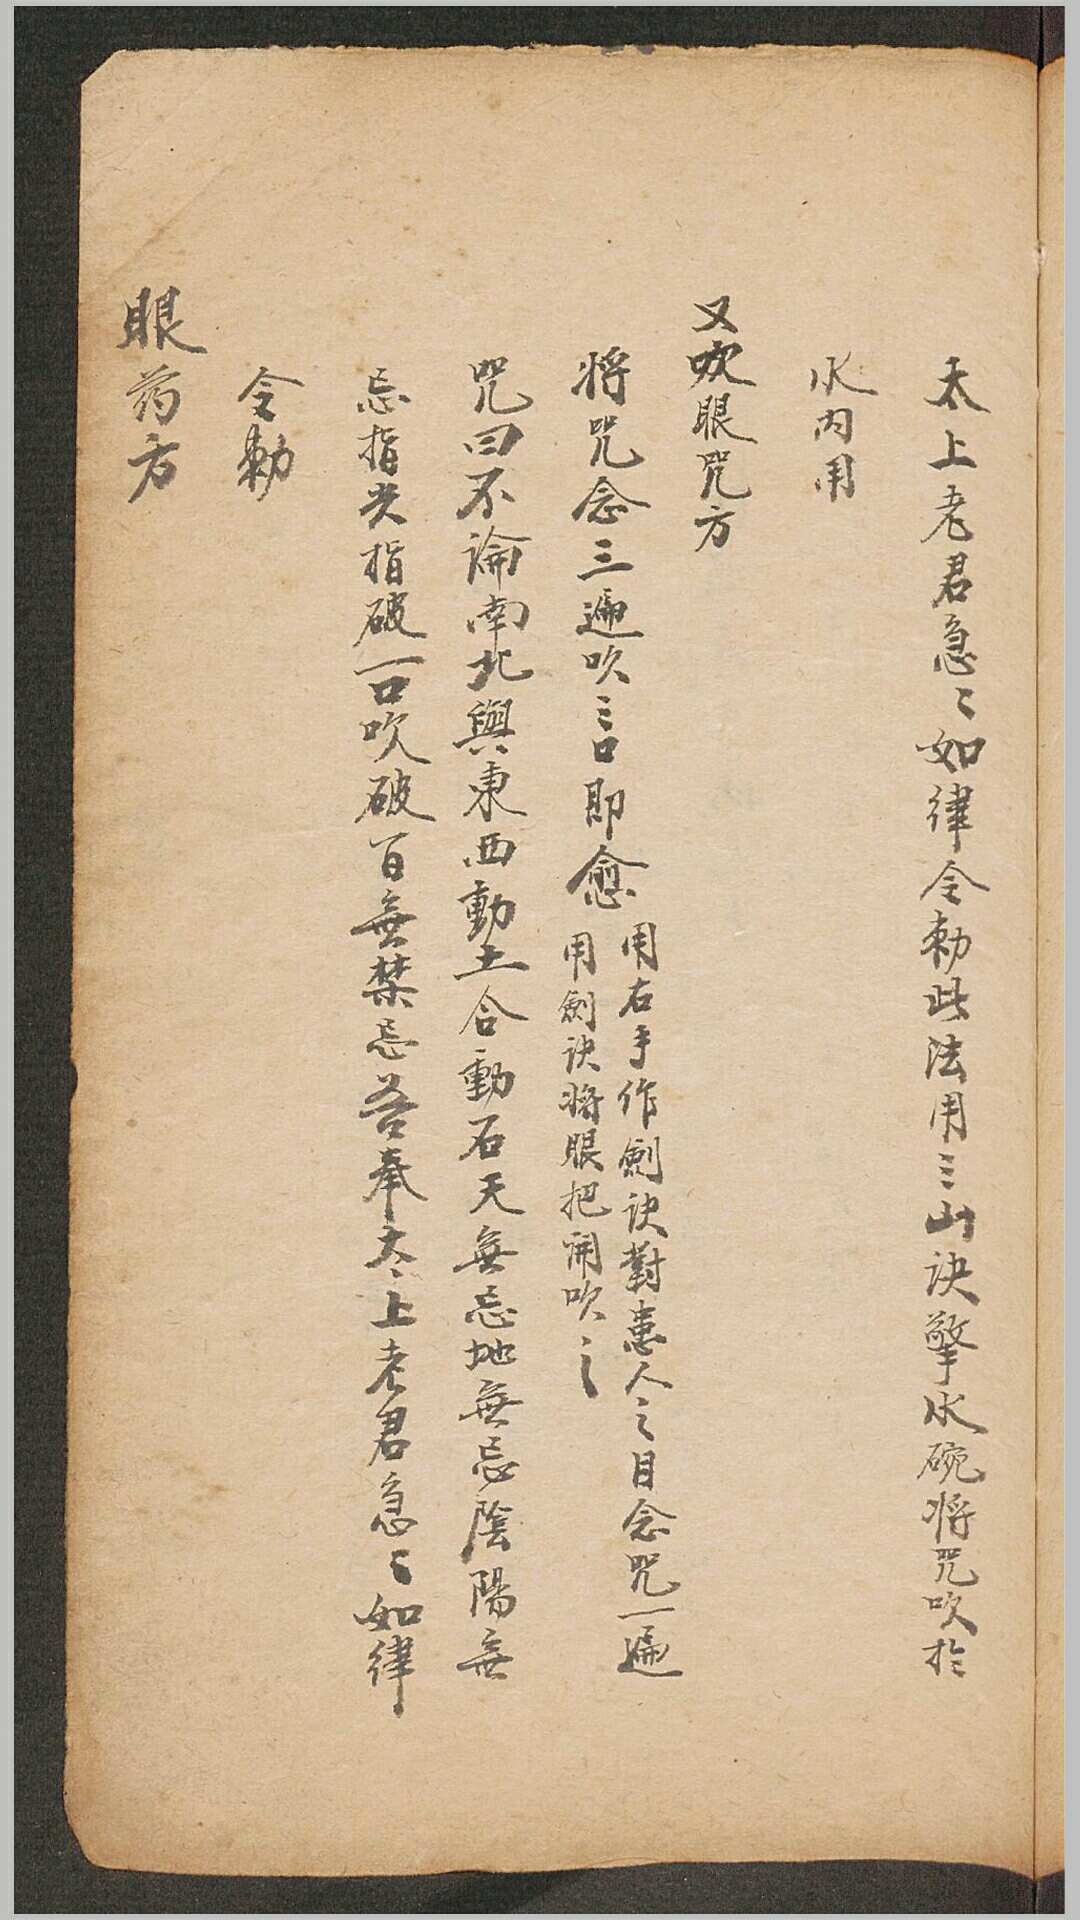 太上老君急〻如律令勅此法用三山訣擎水碗將咒吹於
水內用
又吹眼咒方
將咒念三遍吹三口即愈
用右手作劍訣對患人之目念咒一遍
用劍訣將眼把開吹之
咒曰不論南北與東西動土合動石天無忌地無忌陰陽無
忌指尖指破一口吹破百無禁忌吾奉太上老君急〻如律
令勅
眼药方